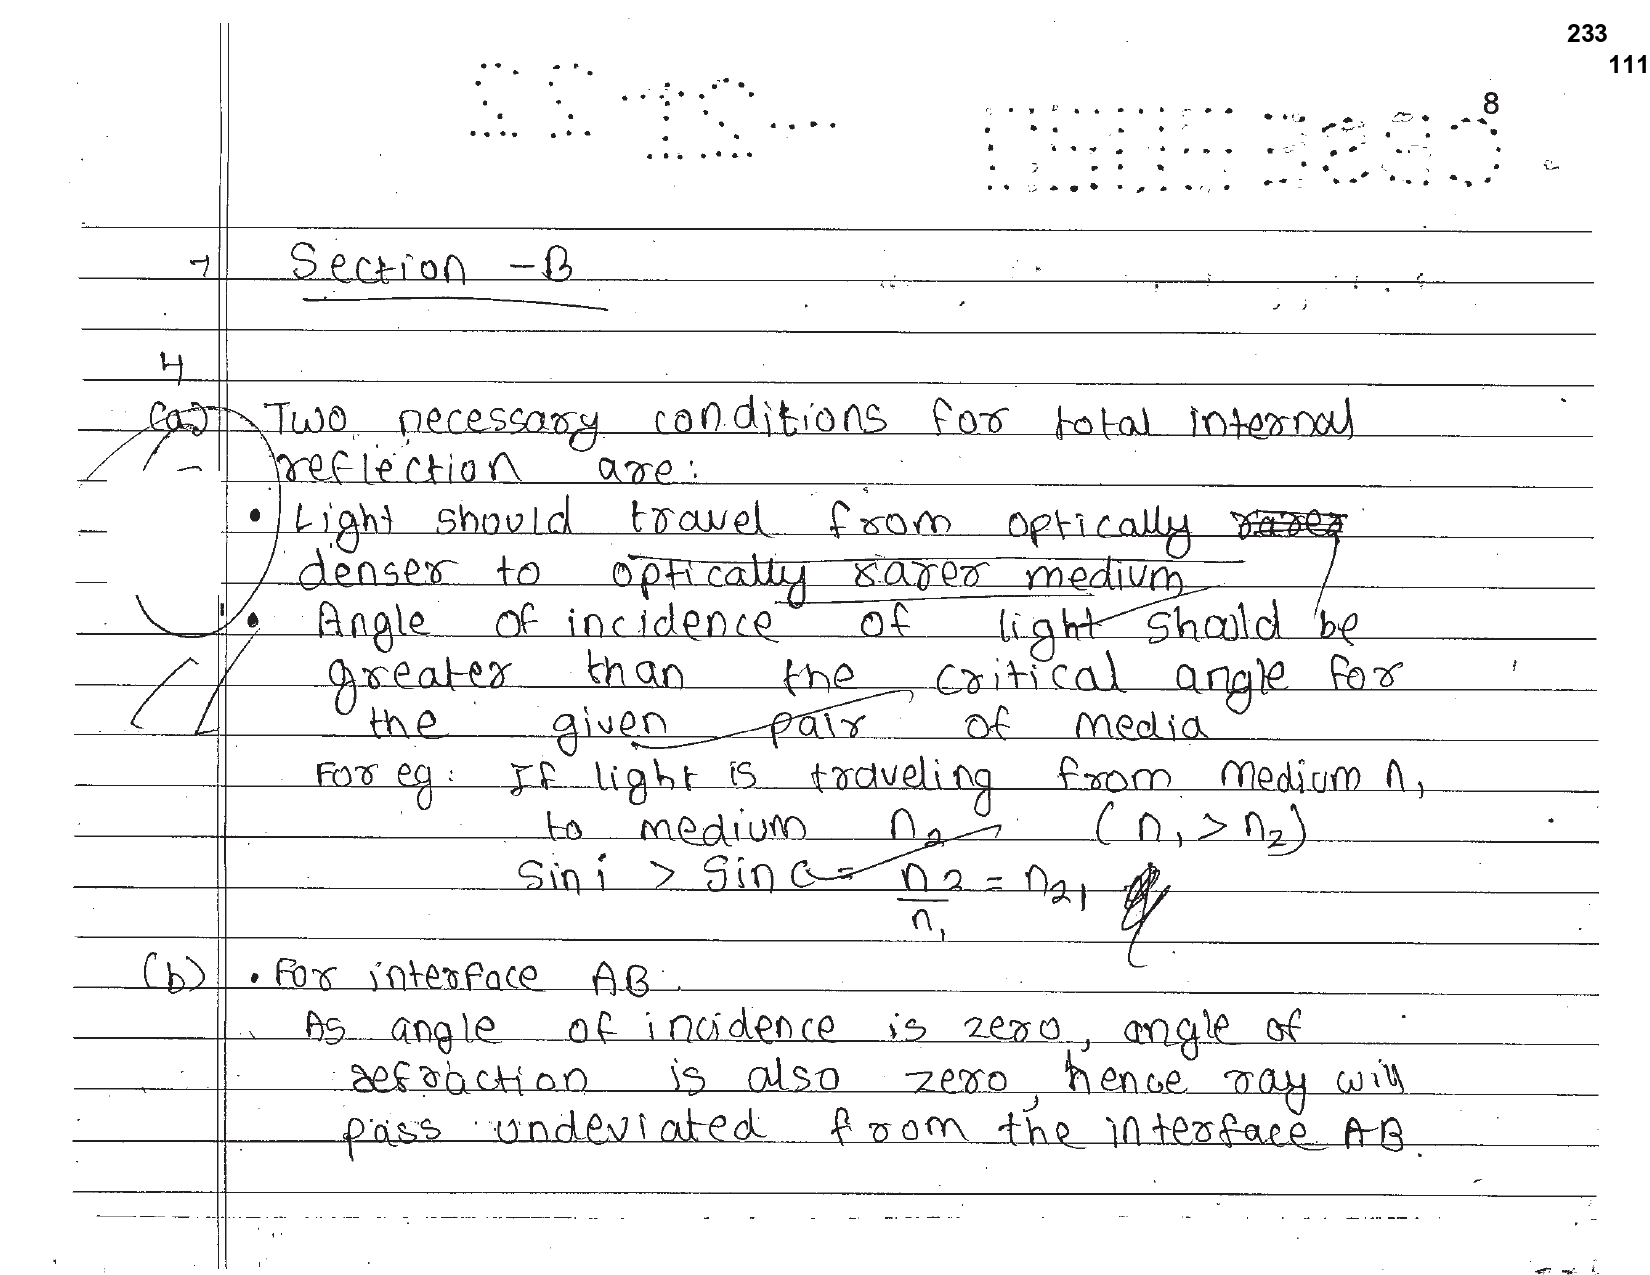 233
111
8
Section - B
4
(a) Two necessary conditions for total internal
reflection are:
• Light should travel from optically rarer
denser to optically rarer medium
• Angle of incidence of light should be
greater than the critical angle for
the given pair of media
For eg: If light is traveling from medium n₁
to medium n₂ (n₁ > n₂)
Sin i > Sin C = n₂/n₁ = n₂₁
(b) • For interface AB.
As angle of incidence is zero, angle of
refraction is also zero, hence ray will
pass undeviated from the interface AB.